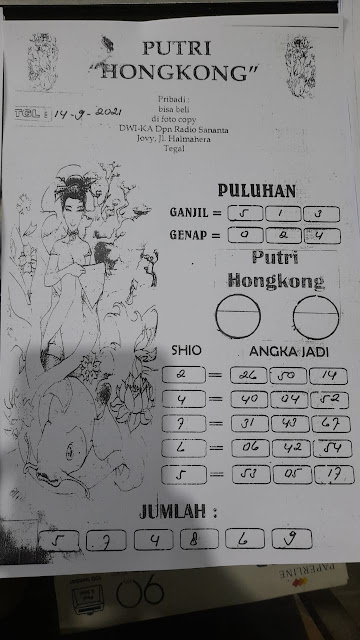 PUTRI
"HONGKONG"
Pribadi :
bisa beli
di foto copy
DWI-KA Dpn Radio Sananta
Jovy, Jl. Halmahera
Tegal
TGL : 14-9-2021
PULUHAN
GANJIL = 5 1 3
GENAP = 0 2 4
Putri
Hongkong
SHIO ANGKA JADI
2 = 26 50 14
4 = 40 04 52
7 = 31 43 67
6 = 06 42 54
5 = 53 05 17
JUMLAH :
5 7 4 8 6 9
PAPERLINE
90